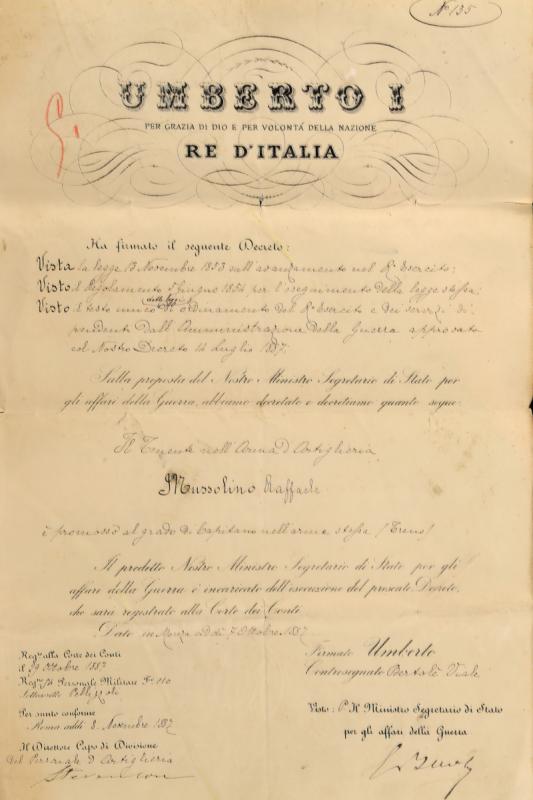 Nº 135
UMBERTO I
PER GRAZIA DI DIO E PER VOLONTÀ DELLA NAZIONE
RE D'ITALIA
Ha firmato il seguente Decreto:
Vista la legge 13 Novembre 1853 sull'avanzamento nel Rº Esercito;
Visto il Regolamento Giugno 1854 per l'eseguimento della legge stessa;
Visto il testo unico delle leggi di ordinamento del Rº Esercito e dei servizi di-
pendenti dall'Amministrazione della Guerra approvato
col Nostro Decreto 14 Luglio 1887.
Sulla proposta del Nostro Ministro Segretario di Stato per
gli affari della Guerra, abbiamo decretato e decretiamo quanto segue:
Il Tenente nell'Arma d'Artiglieria
Mussolino Raffaele
è promosso al grado di Capitano nell'arma stessa (Treno)
Il predetto Nostro Ministro Segretario di Stato per gli
affari della Guerra è incaricato dell'esecuzione del presente Decreto,
che sarà registrato alla Corte dei Conti.
Dato in Monza addì 7 Ottobre 1887
Regto alla Corte dei Conti
il 29 Ottobre 1887
Regro Personale Militare Fº 110
Sottoscritto
Per sunto conforme
Roma addì 8 Novembre 1887
Il Direttore Capo di Divisione
del Personale d'Artiglieria
Firmato Umberto
Controsegnato Bertolè Viale
Visto: Pº Il Ministro Segretario di Stato
per gli affari della Guerra